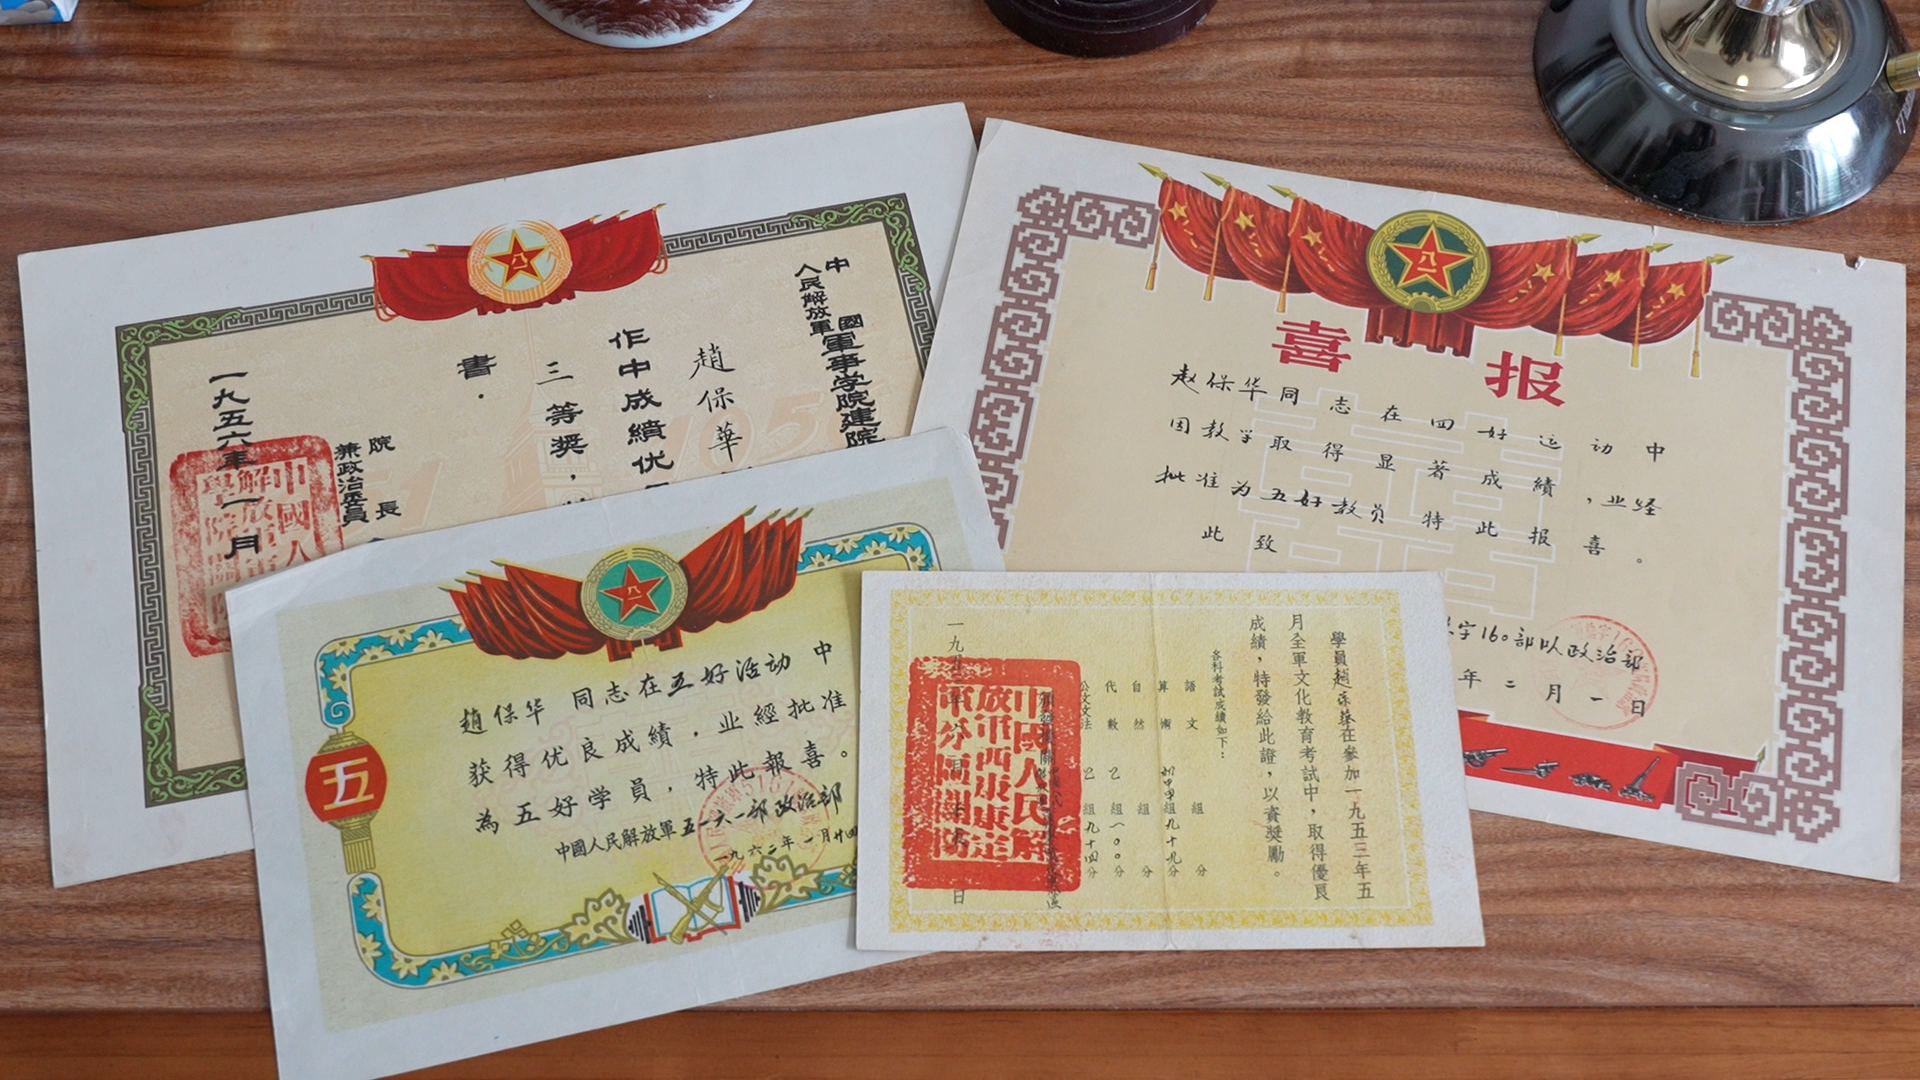 中國軍事学院建院
人民解放軍
趙保華
作中成績优
三等奖，
書.
院長
兼政治委員
一九五六年一月
喜报
赵保华同志在四好运动中
因教学取得显著成绩，业经
批准为五好教员特此报喜。
此致
字160部队政治部
年二月一日
五
趙保华同志在五好活动中
获得优良成績，业經批准
為五好学員，特此報喜。
中國人民解放軍五一六一部政治部
一九六二年一月廿四
學員趙保華在參加一九五三年五
月全軍文化教育考試中，取得優良
成績，特發給此證，以資獎勵。
各科考試成績如下：
語文 組 分
算術 初中甲組九十九分
自然 組 分
代數 乙組一〇〇分
公文文法 乙組九十四分
中國人民解
放軍西康康定
軍分區關防